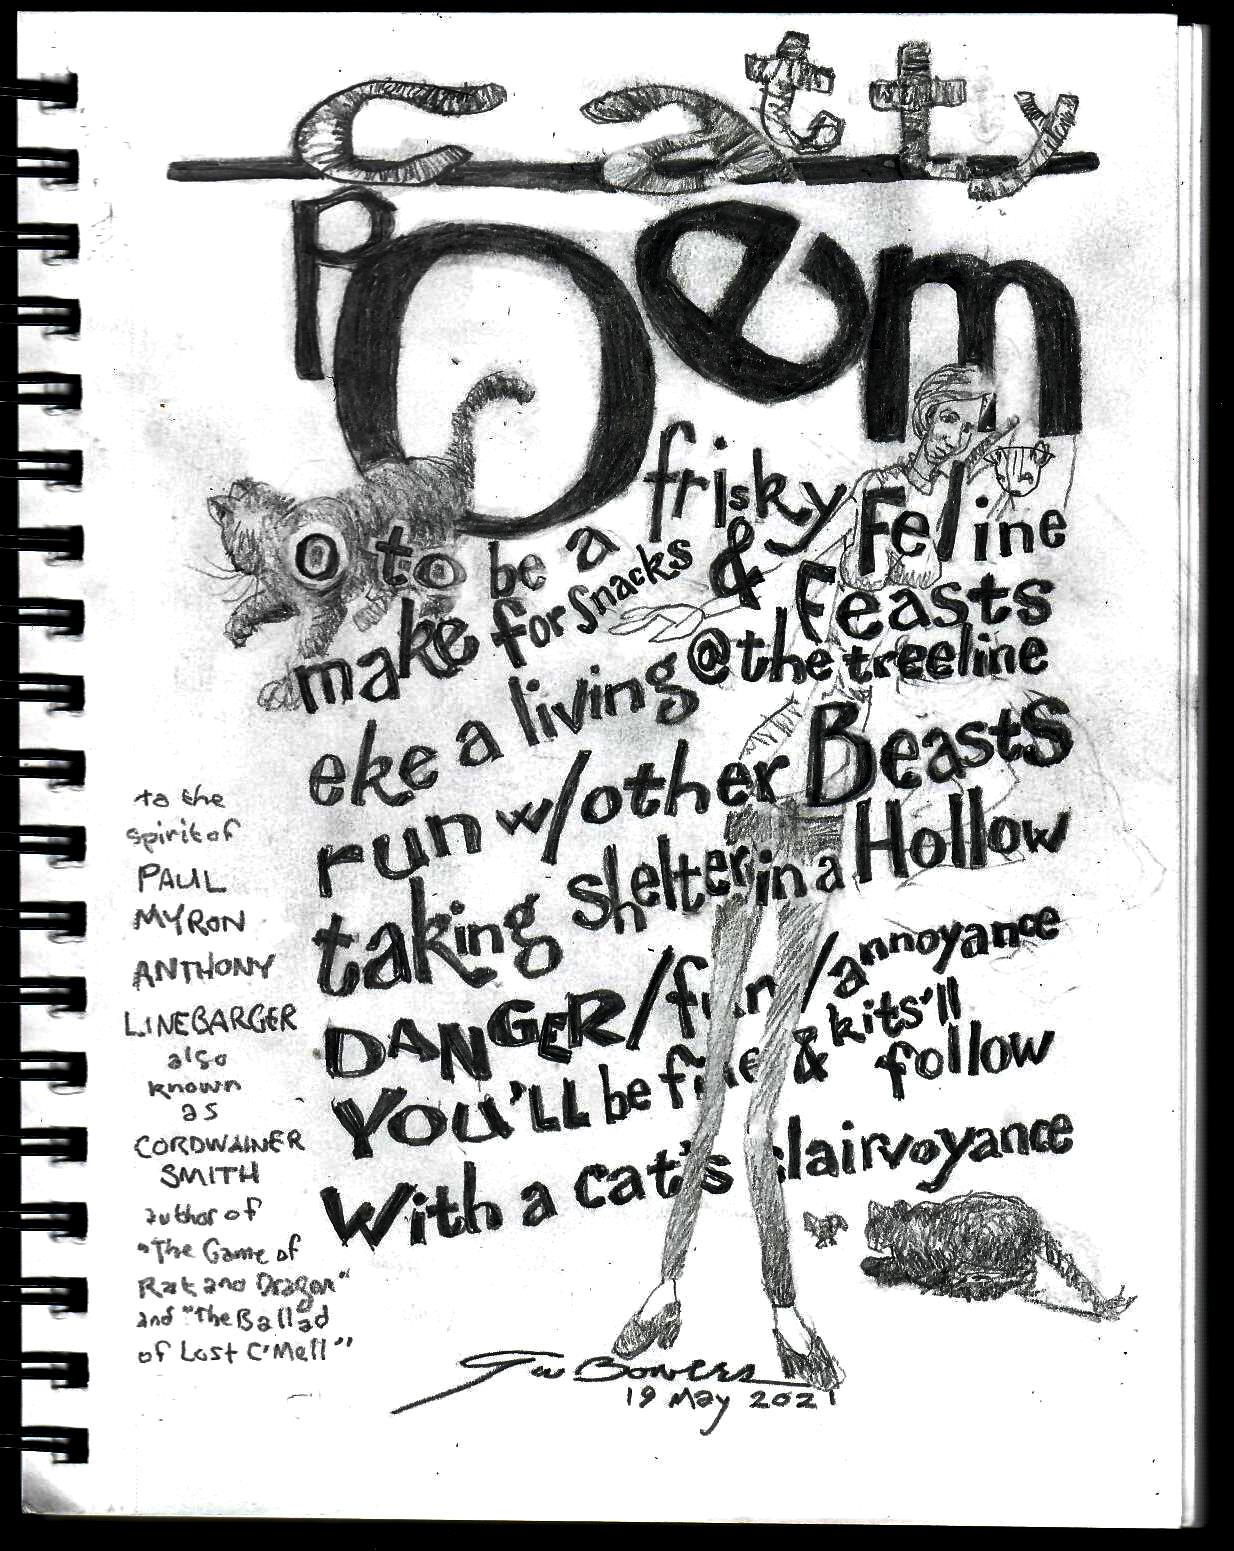 catty
poem
o to be a frisky Feline
make for snacks & Feasts
eke a living @ the treeline
run w/other Beasts
taking shelter in a Hollow
DANGER/fun/annoyance
YOU'LL be fine & kits'll follow
With a cat's clairvoyance
to the
spirit of
PAUL
MYRON
ANTHONY
LINEBARGER
also
known
as
CORDWAINER
SMITH
author of
"The Game of
Rat and Dragon"
and "The Ballad
of Lost C'Mell"
Bowers
19 May 2021